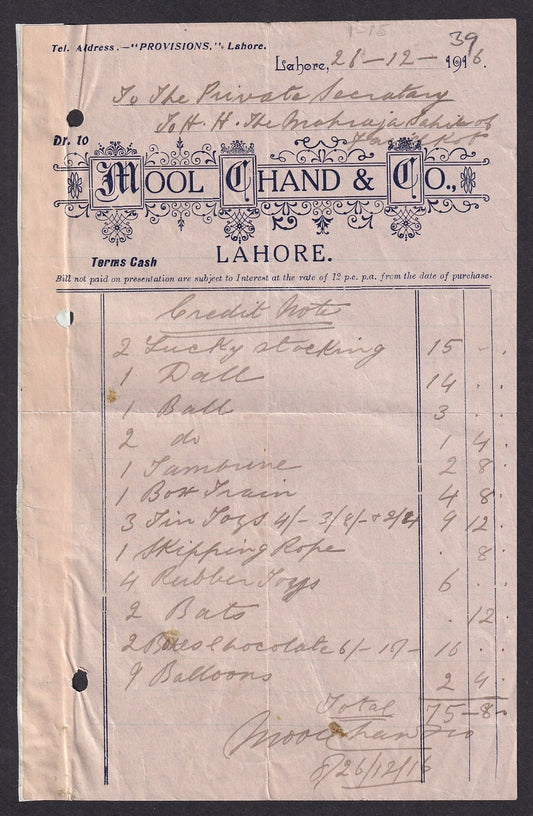 39
Tel. Address.—"PROVISIONS," Lahore.
Lahore, 26-12- 1916.
To The Private Secretary
To H. H. The Mahraja Sahib of
Dr. to
MOOL CHAND & CO.,
Terms Cash
LAHORE.
Bill not paid on presentation are subject to Interest at the rate of 12 p.c. p.a. from the date of purchase.
Credit Note
2 Lucky stocking 15 - .
1 Dall 14 . .
1 Ball 3 . .
2 do 1 4 .
1 Tambrine 2 8 .
1 Box Train 4 8 .
3 Tin Toys 4/- 3/8/- & 2/4 9 12 .
1 Skipping Rope . 8 .
4 Rubber Toys 6 . .
2 Bats . 12 .
2 Boxes Chocolate 6/- 10/- 16 . .
9 Balloons 2 4 .
Total 75-8-
Moolchand & Co
26/12/16